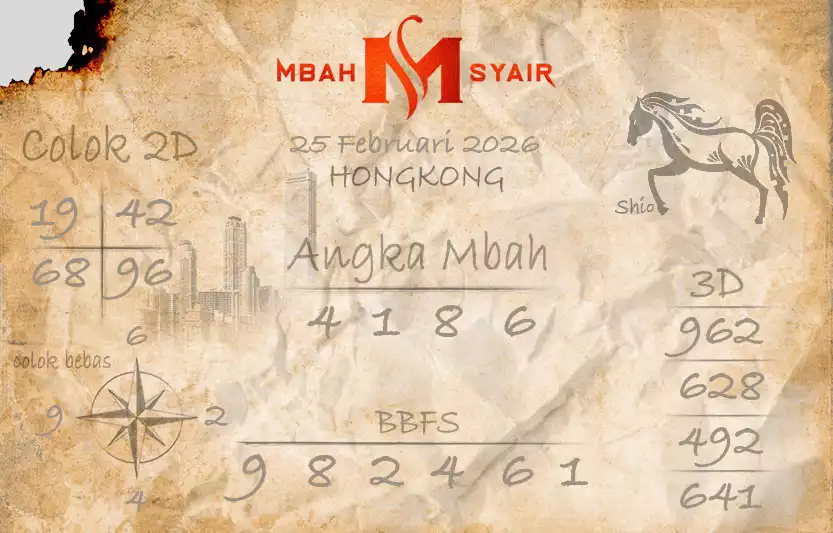 MBAH M SYAIR
25 Februari 2026
HONGKONG
Colok 2D
19 42
68 96
Shio
Angka Mbah
4 1 8 6
colok bebas
6
9 2
4
BBFS
9 8 2 4 6 1
3D
962
628
492
641